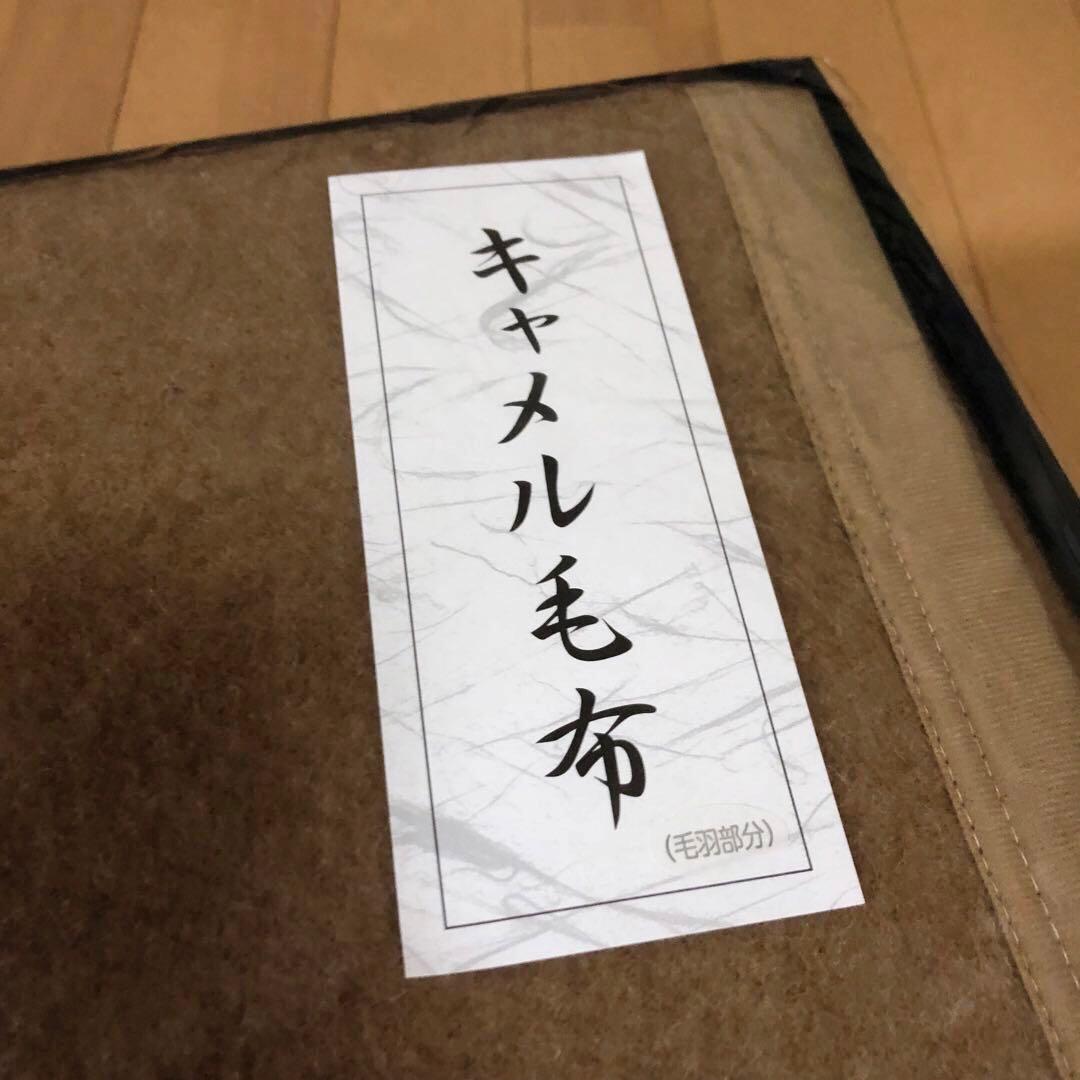 キャメル毛布
(毛羽部分)